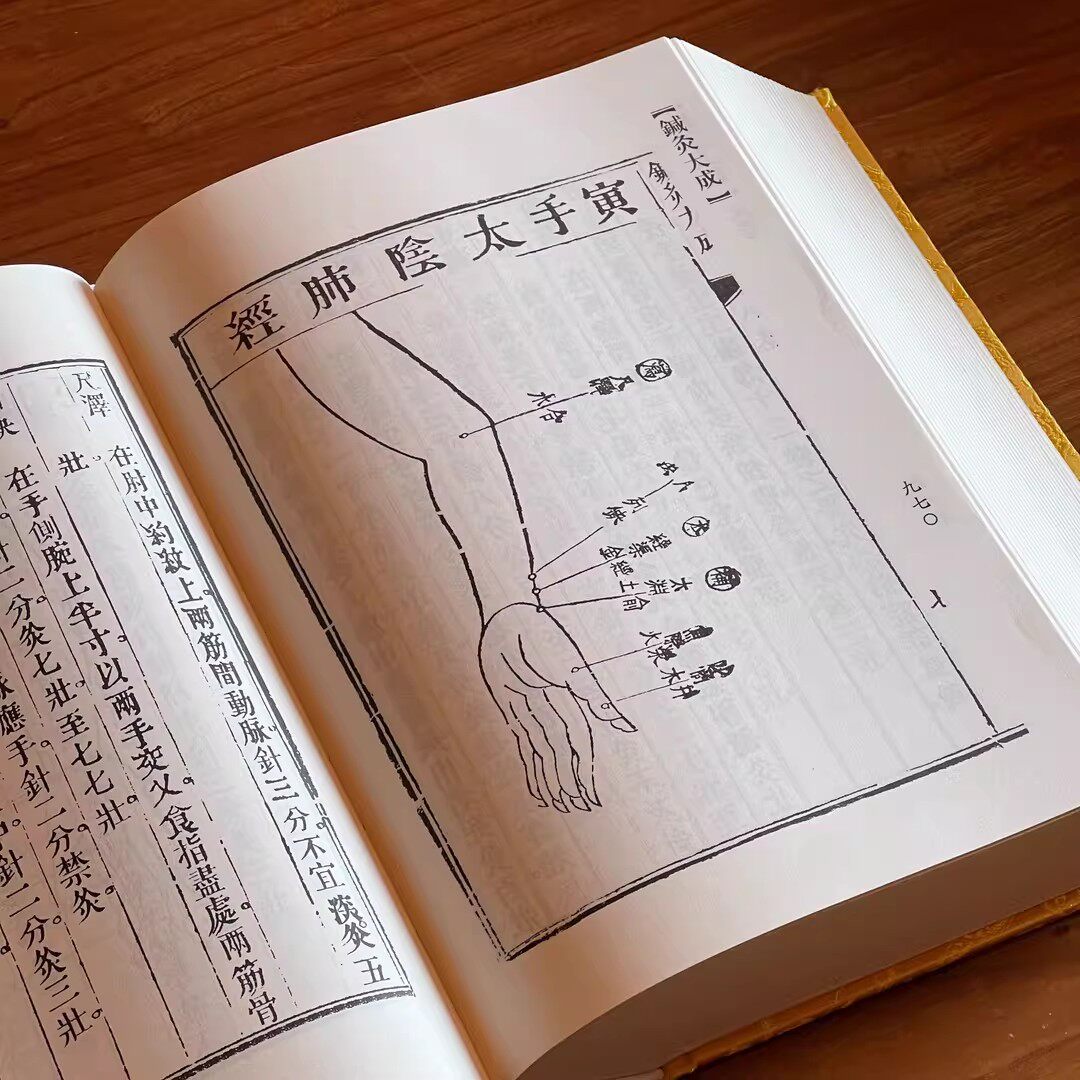 【鍼灸大成】
五
九七〇
寅手太陰肺經
水合
列缺
經渠
金經
太淵
土俞
尺澤 在肘中約紋上。兩筋間動脉。針三分。不宜深灸。五
壯。
缺 在手側腕上半寸以兩手交叉。食指盡處兩筋骨
針二分灸七壯。至七七壯。
應手針二分禁灸。
針一分灸三壯。